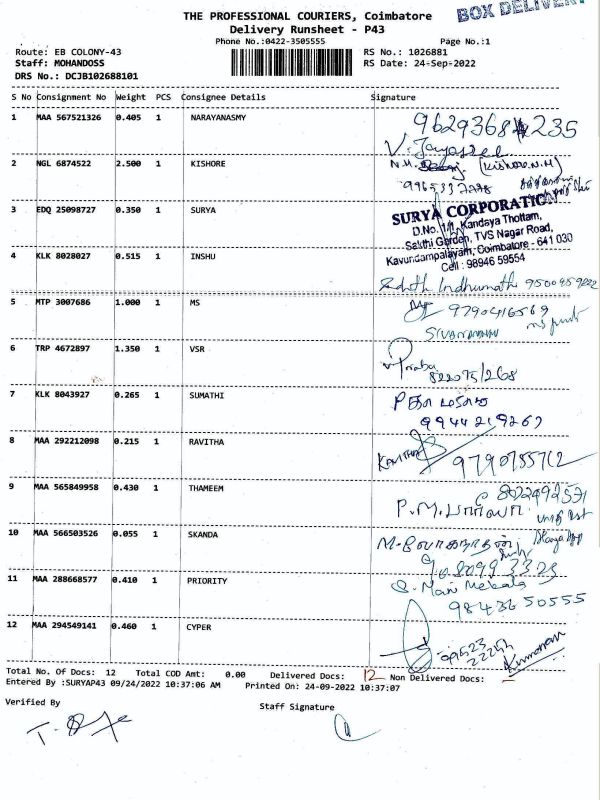 THE PROFESSIONAL COURIERS, Coimbatore
BOX DELIVERY
Delivery Runsheet - P43
Phone No.:0422-3505555 Page No.:1
Route: EB COLONY-43 RS No.: 1026881
Staff: MOHANDOSS RS Date: 24-Sep-2022
DRS No.: DCJB102688101
S No Consignment No Weight PCS Consignee Details Signature
1 MAA 567521326 0.405 1 NARAYANASMY
2 NGL 6874522 2.500 1 KISHORE
(Kishore.N.M)
3 EDQ 25098727 0.350 1 SURYA
SURYA CORPORATION
D.No. 1/1, Kandaya Thottam,
Sakthi Garden, TVS Nagar Road,
Kavundampalayam, Coimbatore - 641 030
Cell : 98946 59554
4 KLK 8028027 0.515 1 INSHU
Indhumathi 9500959222
5 MTP 3007686 1.000 1 MS
9790416569
6 TRP 4672897 1.350 1 VSR
7 KLK 8043927 0.265 1 SUMATHI
9944219267
8 MAA 292212098 0.215 1 RAVITHA
9 MAA 565849958 0.430 1 THAMEEM
10 MAA 566503526 0.055 1 SKANDA
11 MAA 288668577 0.410 1 PRIORITY
9843650555
12 MAA 294549141 0.460 1 CYPER
Kumaran
Total No. Of Docs: 12 Total COD Amt: 0.00 Delivered Docs: 12 Non Delivered Docs: -
Entered By :SURYAP43 09/24/2022 10:37:06 AM Printed On: 24-09-2022 10:37:07
Verified By Staff Signature